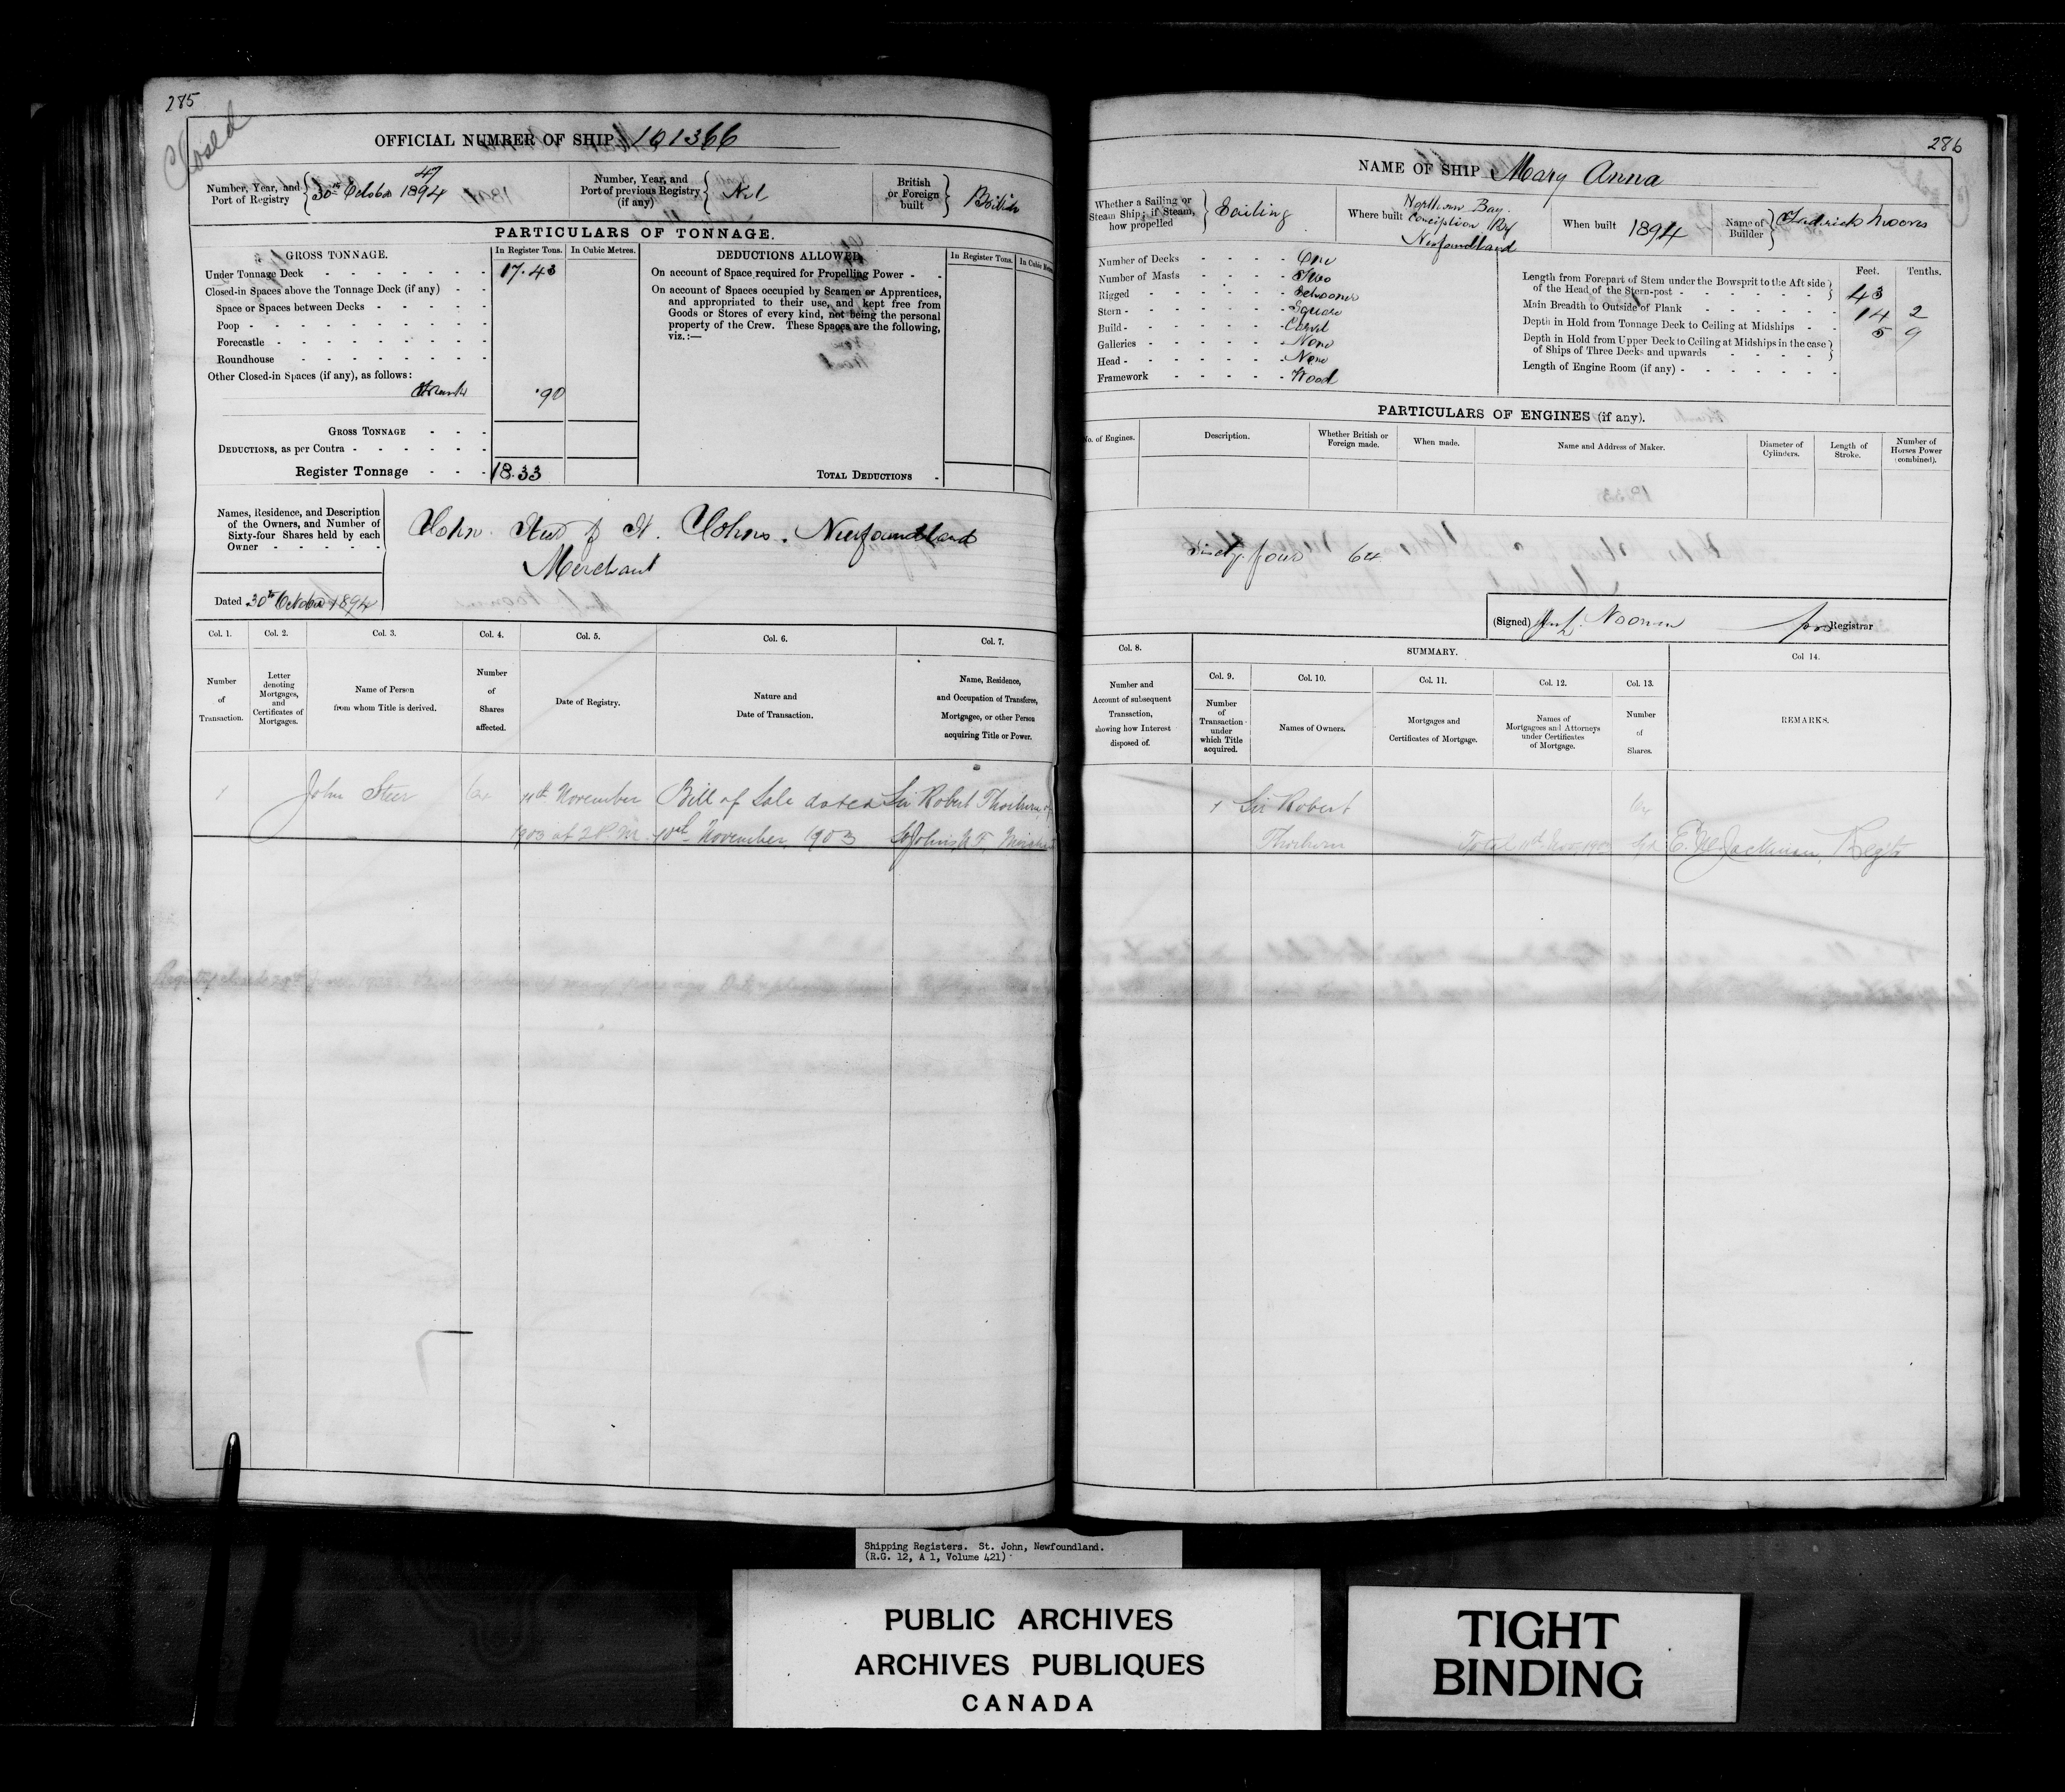 285
Closed
OFFICIAL NUMBER OF SHIP 101366
Number, Year, and Port of Registry { 47 30th October 1894
Number, Year, and Port of previous Registry (if any) { Nil
British or Foreign built } British
PARTICULARS OF TONNAGE.
GROSS TONNAGE. In Register Tons. In Cubic Metres.
Under Tonnage Deck 17.43
Closed-in Spaces above the Tonnage Deck (if any)
Space or Spaces between Decks
Poop
Forecastle
Roundhouse
Other Closed-in Spaces (if any), as follows:
.90
GROSS TONNAGE
DEDUCTIONS, as per Contra
Register Tonnage 18.33
DEDUCTIONS ALLOWED In Register Tons.
On account of Space required for Propelling Power
On account of Spaces occupied by Seamen or Apprentices,
and appropriated to their use, and kept free from
Goods or Stores of every kind, not being the personal
property of the Crew. These Spaces are the following,
viz.:—
TOTAL DEDUCTIONS
Names, Residence, and Description
of the Owners, and Number of
Sixty-four Shares held by each
Owner
John Steer of St. Johns. Newfoundland
Merchant
Dated 30th October 1894
Col. 1. Col. 2. Col. 3. Col. 4. Col. 5. Col. 6. Col. 7.
Number of Transaction.
Letter denoting Mortgages, and Certificates of Mortgages.
Name of Person from whom Title is derived.
Number of Shares affected.
Date of Registry.
Nature and Date of Transaction.
Name, Residence, and Occupation of Transferee, Mortgagee, or other Person acquiring Title or Power.
1 John Steer 64 11th November Bill of Sale dated Sir Robert Thorburn of
1903 at 2 P.M. November 1903 St Johns N F
286
NAME OF SHIP Mary Anna
Whether a Sailing or Steam Ship; if Steam, how propelled } Sailing
Where built Northern Bay Conception Bay Newfoundland
When built 1894
Name of Builder } Moores
Number of Decks One
Number of Masts Two
Rigged Schooner
Stern Square
Build Carvel
Galleries None
Head None
Framework Wood
Feet. Tenths.
Length from Forepart of Stem under the Bowsprit to the Aft side
of the Head of the Stern-post } 43
Main Breadth to Outside of Plank 14 2
Depth in Hold from Tonnage Deck to Ceiling at Midships 5 9
Depth in Hold from Upper Deck to Ceiling at Midships in the case
of Ships of Three Decks and upwards }
Length of Engine Room (if any)
PARTICULARS OF ENGINES (if any).
No. of Engines. Description. Whether British or Foreign made. When made. Name and Address of Maker. Diameter of Cylinders. Length of Stroke. Number of Horses Power (combined).
Sixty four 64
(Signed) Noonan pro Registrar
Col. 8. SUMMARY. Col 14.
Col. 9. Col. 10. Col. 11. Col. 12. Col. 13.
Number and Account of subsequent Transaction, showing how Interest disposed of.
Number of Transaction under which Title acquired.
Names of Owners.
Mortgages and Certificates of Mortgage.
Names of Mortgagees and Attorneys under Certificates of Mortgage.
Number of Shares.
REMARKS.
1 Sir Robert 64
Thorburn E. M. Jackman, Regtr
Shipping Registers. St. John, Newfoundland.
(R.G. 12, A 1, Volume 421)
PUBLIC ARCHIVES
ARCHIVES PUBLIQUES
CANADA
TIGHT
BINDING